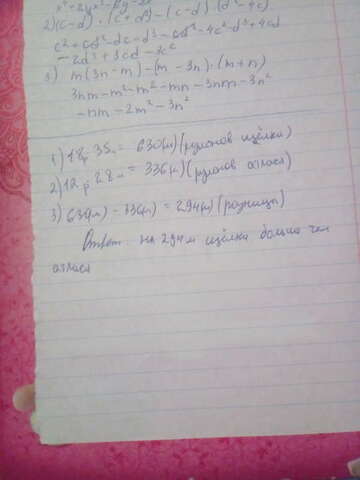 2)(c-d)·(c+d²)-(c-d)·(d²-4c)
c²+cd²-dc-d³-cd²-4c²-d³+4cd
-2d³+3cd-3c²
3) m(3n-m)-(m-3n)·(m+n)
3nm-m²-m²-mn-3nm-3n²
-nm-2m²-3n²
1) 18р 35м = 630(м)(рулонов шёлка)
2) 12р 28м = 336(м)(рулонов атласа)
3) 630(м) - 336(м) = 294(м)(разница)
Ответ на 294м шёлка больше чем
атласа